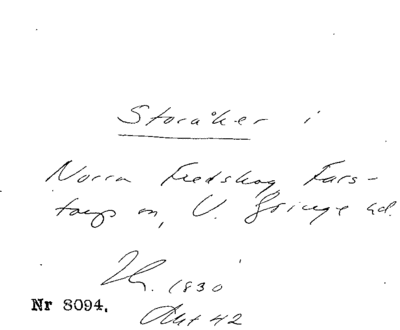 Storåker i
Norra Fredskog Fars-
torps sn, V. Göinge hd.
1830
Nr 8094.
Akt 42